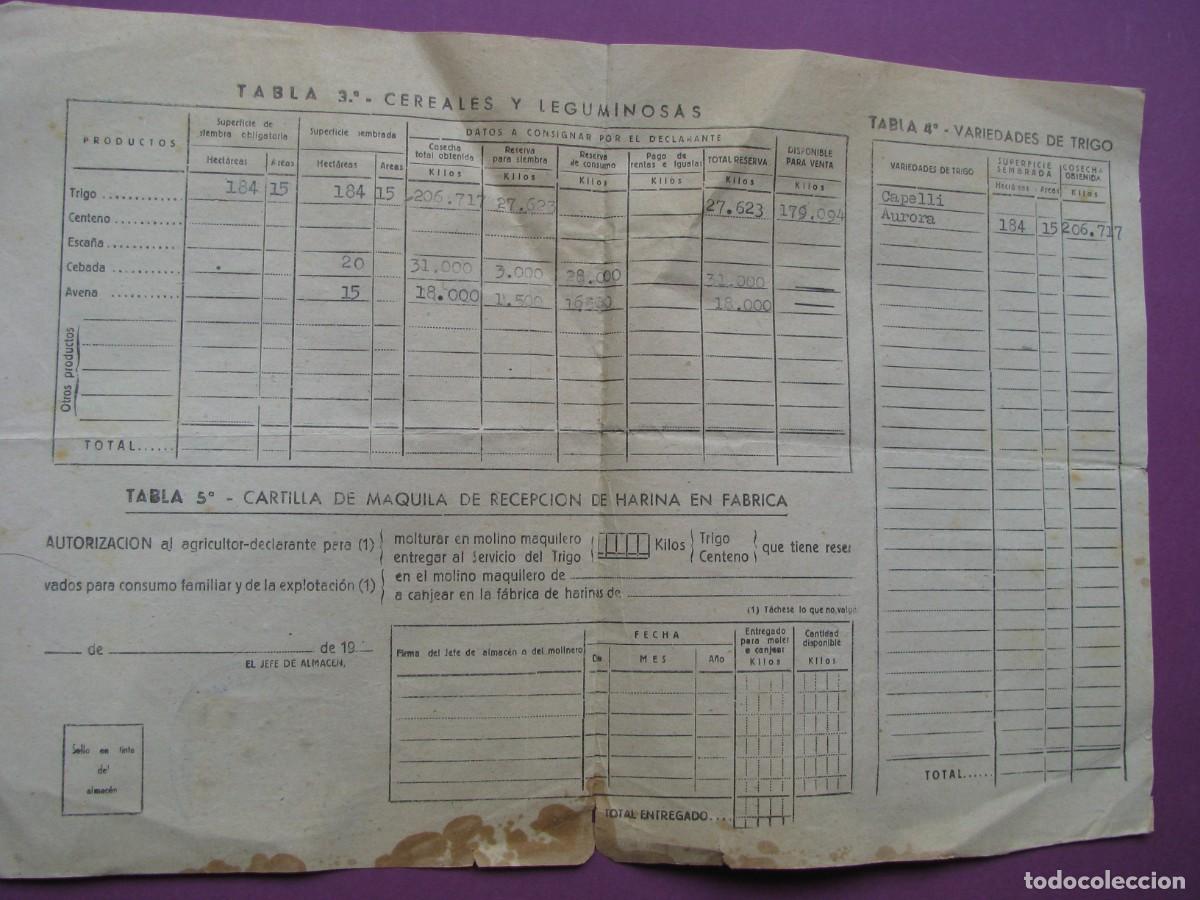 TABLA 3.ª - CEREALES Y LEGUMINOSAS
PRODUCTOS
Superficie de siembra obligatoria
Superficie sembrada
DATOS A CONSIGNAR POR EL DECLARANTE
DISPONIBLE PARA VENTA
Cosecha total obtenida
Reserva para siembra
Reserva de consumo
Pago de rentas e igualas
TOTAL RESERVA
Hectáreas Areas Hectáreas Areas Kilos Kilos Kilos Kilos Kilos Kilos
Trigo 184 15 184 15 206.717 27.623 27.623 179.094
Centeno
Escaña
Cebada 20 31.000 3.000 28.000 31.000
Avena 15 18.000 1.500 18.000
Otros productos
TOTAL
TABLA 4ª - VARIEDADES DE TRIGO
VARIEDADES DE TRIGO
SUPERFICIE SEMBRADA
COSECHA OBTENIDA
Hectáreas Areas Kilos
Capelli
Aurora 184 15 206.717
TOTAL
TABLA 5ª - CARTILLA DE MAQUILA DE RECEPCION DE HARINA EN FABRICA
AUTORIZACION al agricultor-declarante para (1)
molturar en molino maquilero
entregar al Servicio del Trigo
Kilos
Trigo
Centeno
que tiene reser
vados para consumo familiar y de la explotación (1)
en el molino maquilero de
a canjear en la fábrica de harinas de
(1) Táchese lo que no valga
de de 19
EL JEFE DE ALMACEN,
Sello en tinta
del
almacén
Firma del Jefe de almacén o del molinero
FECHA
Día MES Año
Entregado para moler o canjear
Kilos
Cantidad disponible
Kilos
TOTAL ENTREGADO
todocoleccion